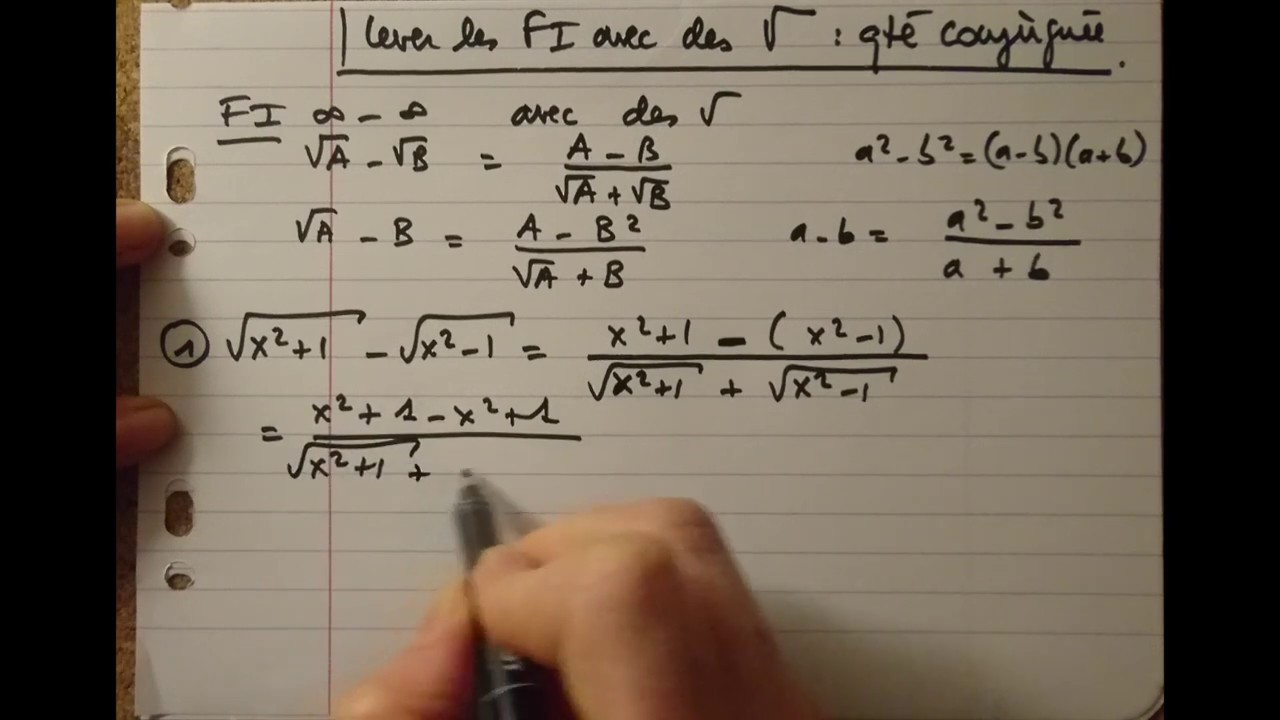 lever les FI avec des √ : qté conjuguée.
FI ∞ - ∞ avec des √
√A - √B = (A - B)/(√A + √B) a² - b² = (a - b)(a + b)
√A - B = (A - B²)/(√A + B) a - b = (a² - b²)/(a + b)
① √(x² + 1) - √(x² - 1) = (x² + 1 - (x² - 1))/(√(x² + 1) + √(x² - 1))
= (x² + 1 - x² + 1)/(√(x² + 1) +